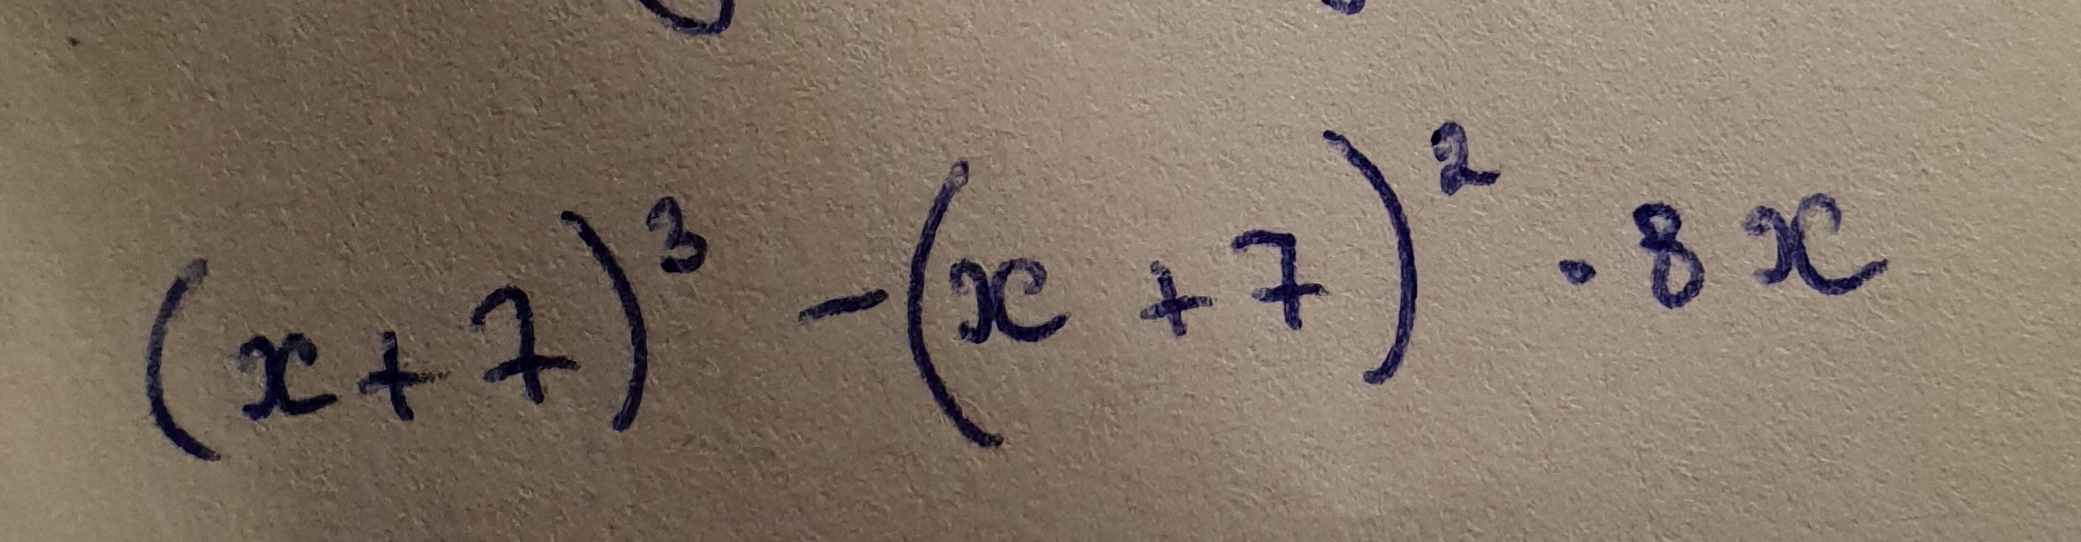 (x+7)³ -(x+7)² · 8x